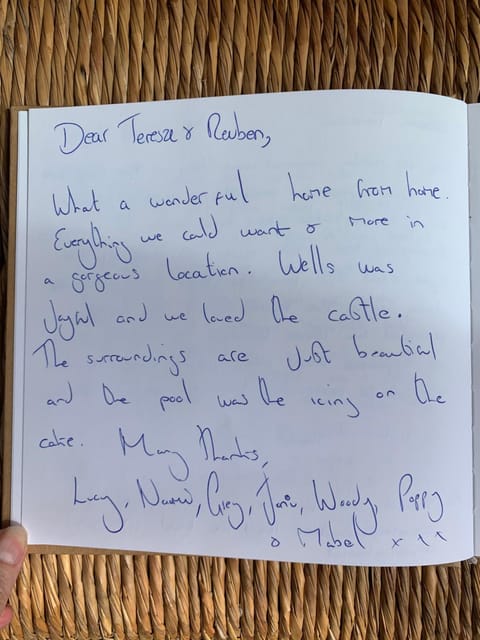 Dear Teresa & Reuben,
What a wonderful home from home.
Everything we could want & more in
a gorgeous location. Wells was
Joyful and we loved the castle.
The surroundings are just beautiful
and the pool was the icing on the
cake. Many Thanks,
Lucy, Greg, Woody, Poppy
& Mabel x x x